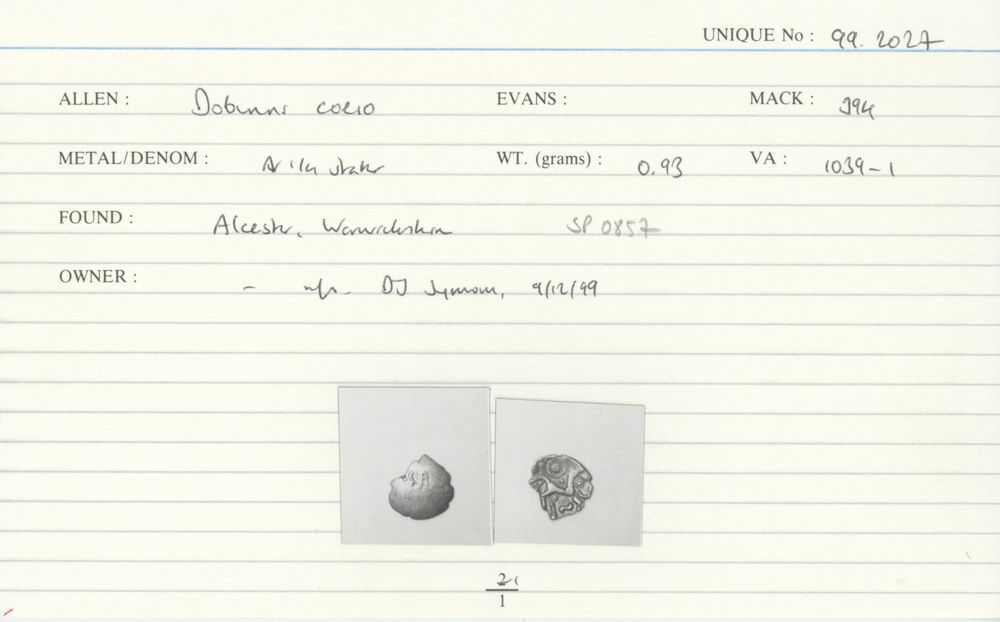 UNIQUE No : 99. 2027
ALLEN : Dobunni corio EVANS : MACK : 394
METAL/DENOM : stater WT. (grams) : 0.93 VA : 1039-1
FOUND : Alcester, Warwickshire SP 0857
OWNER : - DJ Symons, 9/12/99
2
1